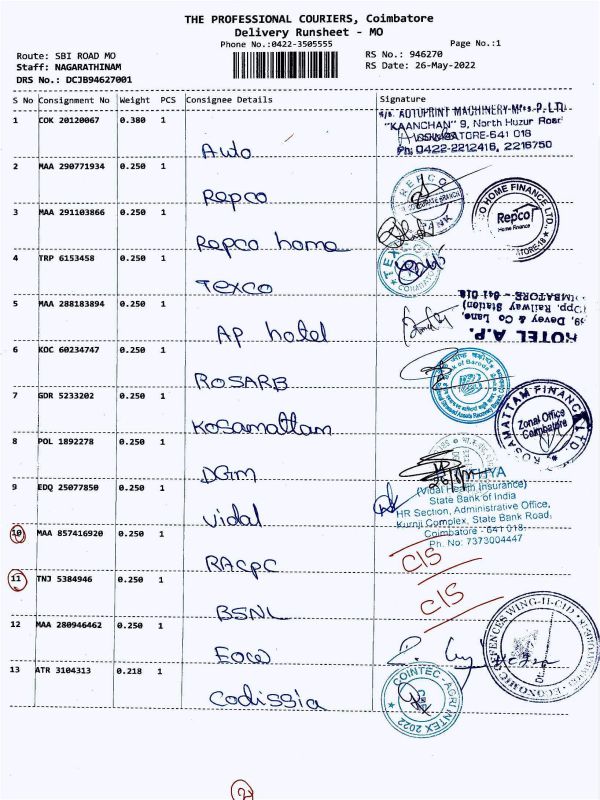 THE PROFESSIONAL COURIERS, Coimbatore
Delivery Runsheet - MO
Phone No.:0422-3505555
Page No.:1
Route: SBI ROAD MO
RS No.: 946270
Staff: NAGARATHINAM
RS Date: 26-May-2022
DRS No.: DCJB94627001
S No Consignment No Weight PCS Consignee Details Signature
1 COK 20120067 0.380 1
Auto
ROTOPRINT MACHINERY Mfrs. P. LTD
"KAANCHAN" 9, North Huzur Road
COIMBATORE-641 018
Ph: 0422-2212416, 2216750
2 MAA 290771934 0.250 1
Repco
REPCO BANK
3 MAA 291103866 0.250 1
Repco home
HOME FINANCE LTD.
Repco
Home Finance
4 TRP 6153458 0.250 1
Texco
5 MAA 288183894 0.250 1
AP hotel
HOTEL A.P.
Davey & Co Lane,
(Opp. Railway Station)
COIMBATORE - 641 018
6 KOC 60234747 0.250 1
ROSARB
7 GDR 5233202 0.250 1
Kosamattam
KOSAMATTAM FINANCE LTD
Zonal Office
Coimbatore
8 POL 1892278 0.250 1
DGM
9 EDQ 25077850 0.250 1
Vidal
(Vidal Health Insurance)
State Bank of India
HR Section, Administrative Office,
Kurnji Complex, State Bank Road,
Coimbatore - 641 018.
Ph. No: 7373004447
10 MAA 857416920 0.250 1
RACPC
C/S
11 TNJ 5384946 0.250 1
BSNL
C/S
12 MAA 280946462 0.250 1
Eow
ECONOMIC OFFENCES WING-II-CID
13 ATR 3104313 0.218 1
Codissia
COINTEC-AGRI INTEX 2022
2